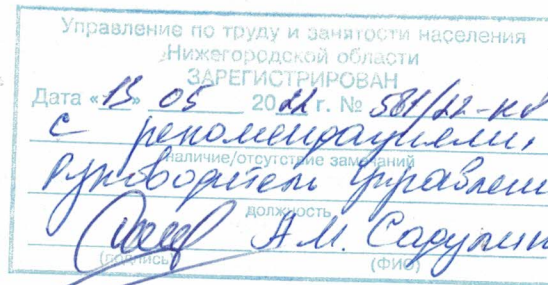 Управление по труду и занятости населения
Нижегородской области
ЗАРЕГИСТРИРОВАН
Дата «13» 05 2022 г. № 561/22-кд
с рекомендациями,
наличие/отсутствие замечаний
Руководитель управлени
должность
А.М. Садулин
(подпись) (ФИО)